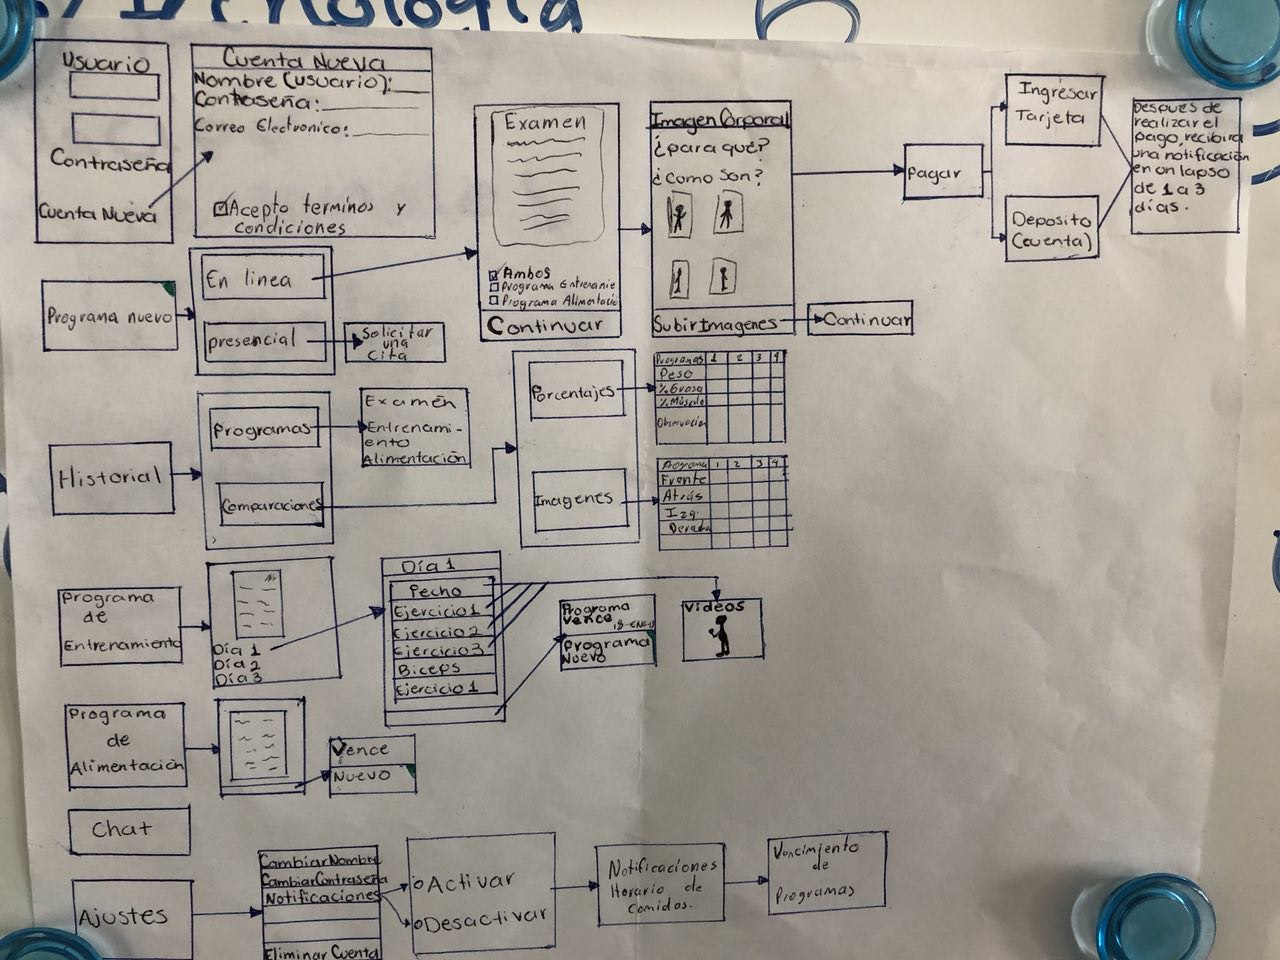 Tecnología
Usuario
Contraseña
Cuenta Nueva
Cuenta Nueva
Nombre (usuario):
Contraseña:
Correo Electronico:
Acepto terminos y
condiciones
Programa nuevo
En linea
presencial
Solicitar
una
Cita
Examen
Ambos
Programa Entrenamie
Programa Alimentació
Continuar
Imagen Corporal
¿para qué?
¿Como Son?
Subir Imagenes
Continuar
pagar
Ingresar
Tarjeta
Deposito
(cuenta)
Después de
realizar el
pago, recibira
una notificación
en un lapso
de 1 a 3
días.
Historial
Programas
Comparaciones
Examén
Entrenami-
ento
Alimentación
Porcentajes
Imagenes
Programas 1 2 3 4
Peso
% Grasa
% Músculo
Observación
Programa 1 2 3 4
Frente
Atrás
Izq.
Programa
de
Entrenamiento
Día 1
Día 2
Día 3
Día 1
Pecho
Ejercicio 1
Ejercicio 2
Ejercicio 3
Biceps
Ejercicio 1
Programa
Vence
Programa
Nuevo
Videos
Programa
de
Alimentación
Vence
Nuevo
Chat
Ajustes
Cambiar Nombre
Cambiar Contraseña
Notificaciones
Eliminar Cuenta
Activar
Desactivar
Notificaciones
Horario de
Comidas.
Vencimiento
de
Programas